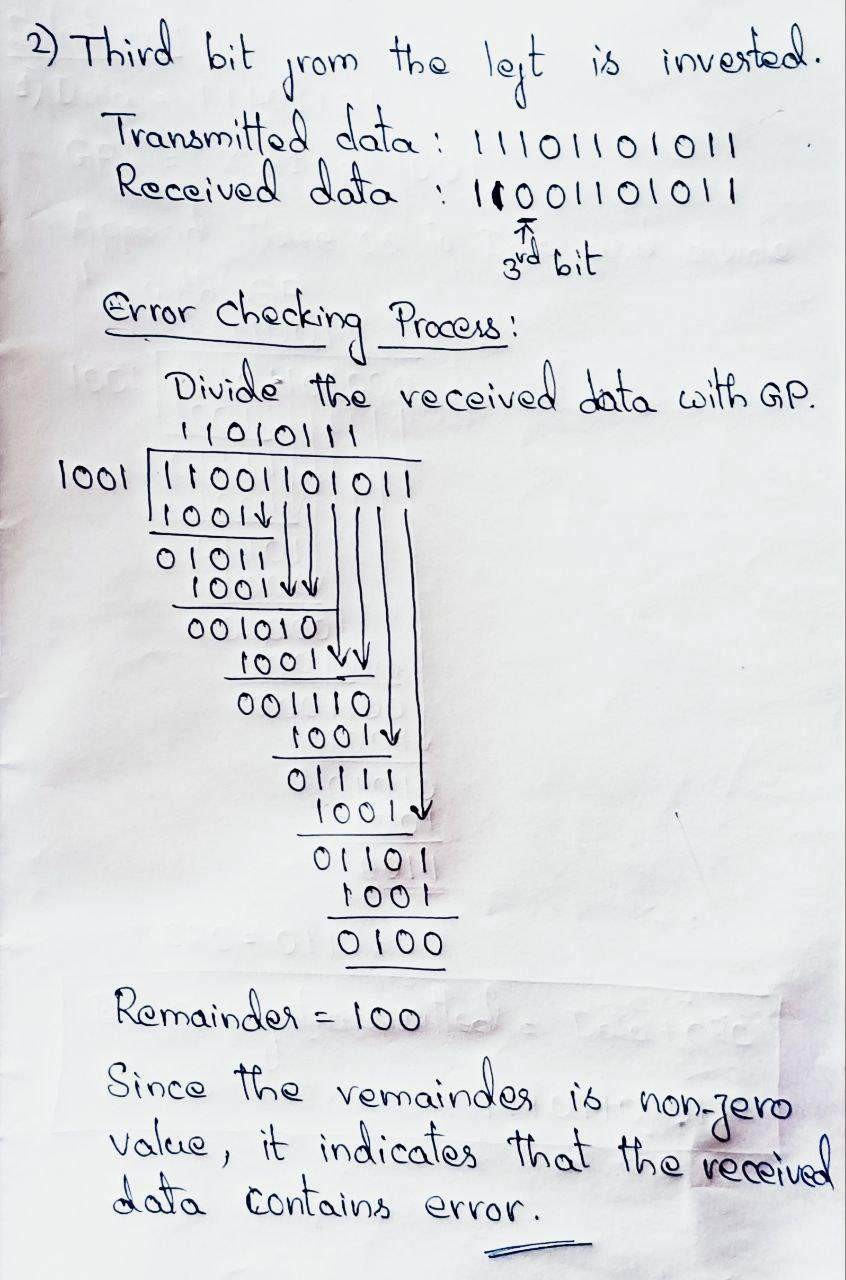 2) Third bit from the left is inverted.
Transmitted data : 11101101011
Received data : 11001101011
3rd bit
Error checking Process:
Divide the received data with GP.
11010111
1001 11001101011
1001
01011
1001
001010
1001
001110
1001
01111
1001
01101
1001
0100
Remainder = 100
Since the remainder is non-zero
value, it indicates that the received
data contains error.